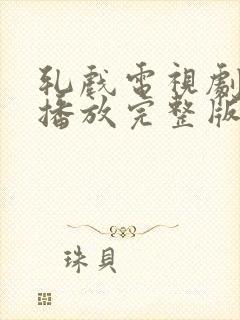 乳戲電視劇
播放完整版
珠貝